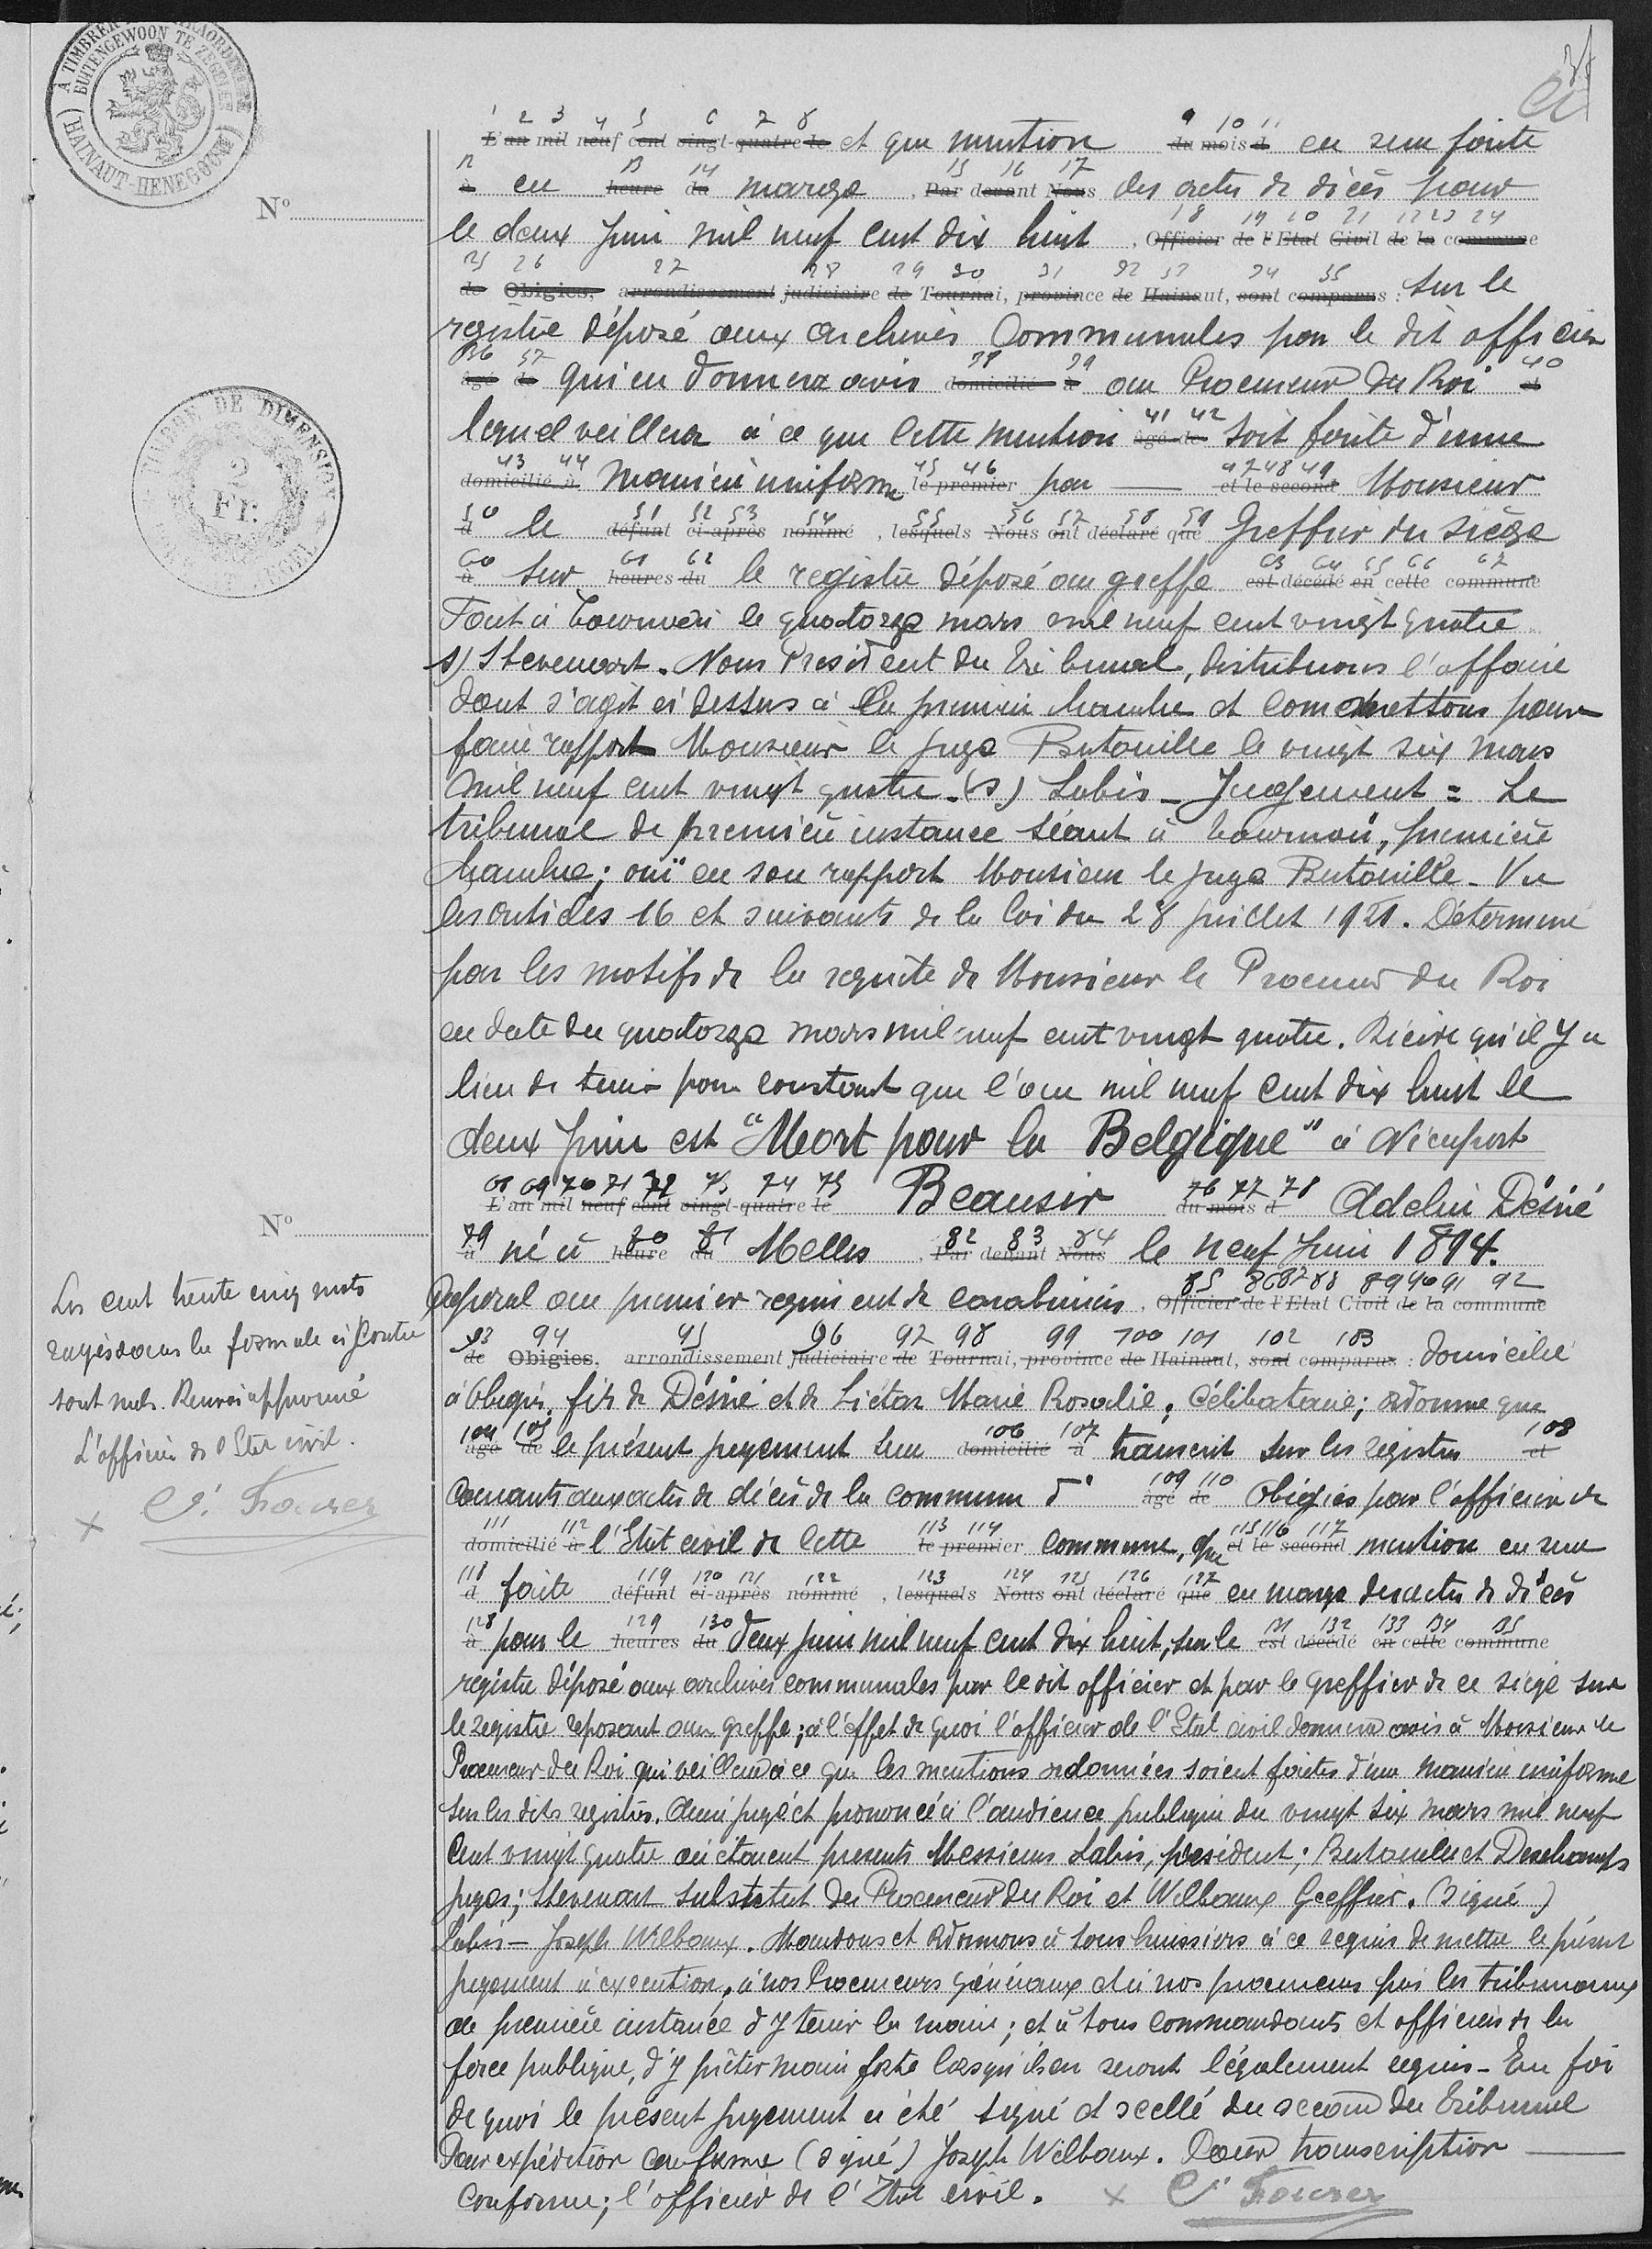 À TIMBRER EXTRAORDINAIRE
BUITENGEWOON TE ZEGELEN
(HAINAUT-HENEGOUW)
1 2 3 4 5 6 7 8 9 10 11
L'an mil neuf cent vingt-quatre le et que mention du mois d en sera faite
12 13 14 15 16 17
à en heure du marge , Par devant Nous des actes de décès pour
N°
18 19 20 21 22 23 24
le deux juin mil neuf cent dix huit , Officier de l'Etat Civil de la commune
25 26 27 28 29 30 31 32 33 34 35
de Obigies, arrondissement judiciaire de Tournai, province de Hainaut, sont comparus : sur le
registre déposé aux archives communales par le dit officier
36 37 38 39 40
âgé de qui en donnera avis domicilié à au Procureur du Roi et
TIMBRE DE DIMENSION
2
Fr.
41 42
lequel veillera à ce que cette mention âgé de soit faite d'une
43 44 45 46 47 48 49
domicilié à manière uniforme le premier par — et le second Monsieur
50 51 52 53 54 55 56 57 58 59
d le défunt ci-après nommé , lesquels Nous ont déclaré que Greffier du siège
60 61 62 63 64 65 66 67
à sur heures du le registre déposé au greffe est décédé en cette commune
Fait à Tournai le quatorze mars mil neuf cent vingt quatre
s) Stevenart. Nous Président du Tribunal, distribuons l'affaire
dont s'agit ci dessus à la première chambre et commettons pour
faire rapport Monsieur le juge Butaille le vingt six mars
mil neuf cent vingt quatre. (s) Labis - Jugement = Le
tribunal de première instance séant à Tournai, première
chambre; ouï en son rapport Monsieur le juge Butaille. Vu
les articles 16 et suivants de la loi du 28 juillet 1921. Déterminé
par les motifs de la requête de Monsieur le Procureur du Roi
en date du quatorze mars mil neuf cent vingt quatre. Décide qu'il y a
lieu de tenir pour constant que l'an mil neuf cent dix huit le
deux juin est "Mort pour la Belgique" à Nieuport
68 69 70 71 72 73 74 75 76 77 78
L'an mil neuf cent vingt-quatre le Beausir du mois d Adelin Désiré
N°
79 80 81 82 83 84
à né à heure du Melles , Par devant Nous le neuf juin 1894.
85 86 87 88 89 90 91 92
Caporal au premier régiment de carabiniers , Officier de l'Etat Civil de la commune
93 94 95 96 97 98 99 100 101 102 103
de Obigies, arrondissement judiciaire de Tournai, province de Hainaut, sont comparus : domicilié
à Obigies, fils de Désiré et de Liétar Marie Rosalie; célibataire; ordonne que
104 105 106 107 108
âgé de le présent jugement sera domicilié à transcrit sur les registres et
109 110
courants aux actes de décès de la commune d' âgé de Obigies par l'officier de
111 112 113 114 115 116 117
domicilié à l'Etat civil de cette le premier commune, que et le second mention en sera
118 119 120 121 122 123 124 125 126 127
d faite défunt ci-après nommé , lesquels Nous ont déclaré que en marge des actes de décès
128 129 130 131 132 133 134 135
à pour le heures du deux juin mil neuf cent dix huit, sur le est décédé en cette commune
registre déposé aux archives communales par le dit officier et par le greffier de ce siège sur
le registre reposant au greffe; à l'effet de quoi l'officier de l'Etat civil donnera avis à Monsieur le
Procureur du Roi qui veillera à ce que les mentions ordonnées soient faites d'une manière uniforme
sur les dits registres. Ainsi jugé et prononcé à l'audience publique du vingt six mars mil neuf
cent vingt quatre où étaient présents Messieurs Labis, président; Butaille et Deschamps
juges; Stevenart substitut du Procureur du Roi et Wilbaux Greffier. (signé)
Labis - Joseph Wilbaux. Mandons et ordonnons à tous huissiers à ce requis de mettre le présent
jugement à exécution, à nos Procureurs généraux et à nos procureurs près les tribunaux
de première instance d'y tenir la main; et à tous commandants et officiers de la
force publique, d'y prêter main forte lorsqu'ils en seront légalement requis - En foi
de quoi le présent jugement a été signé et scellé du sceau du Tribunal
Pour expédition conforme (signé) Joseph Wilbaux. Pour transcription —
conforme; l'officier de l'Etat civil. x
Les cent trente cinq mots
rayés dans la formule ci contre
sont nuls. Renvoi approuvé
L'officier de l'Etat civil.
x